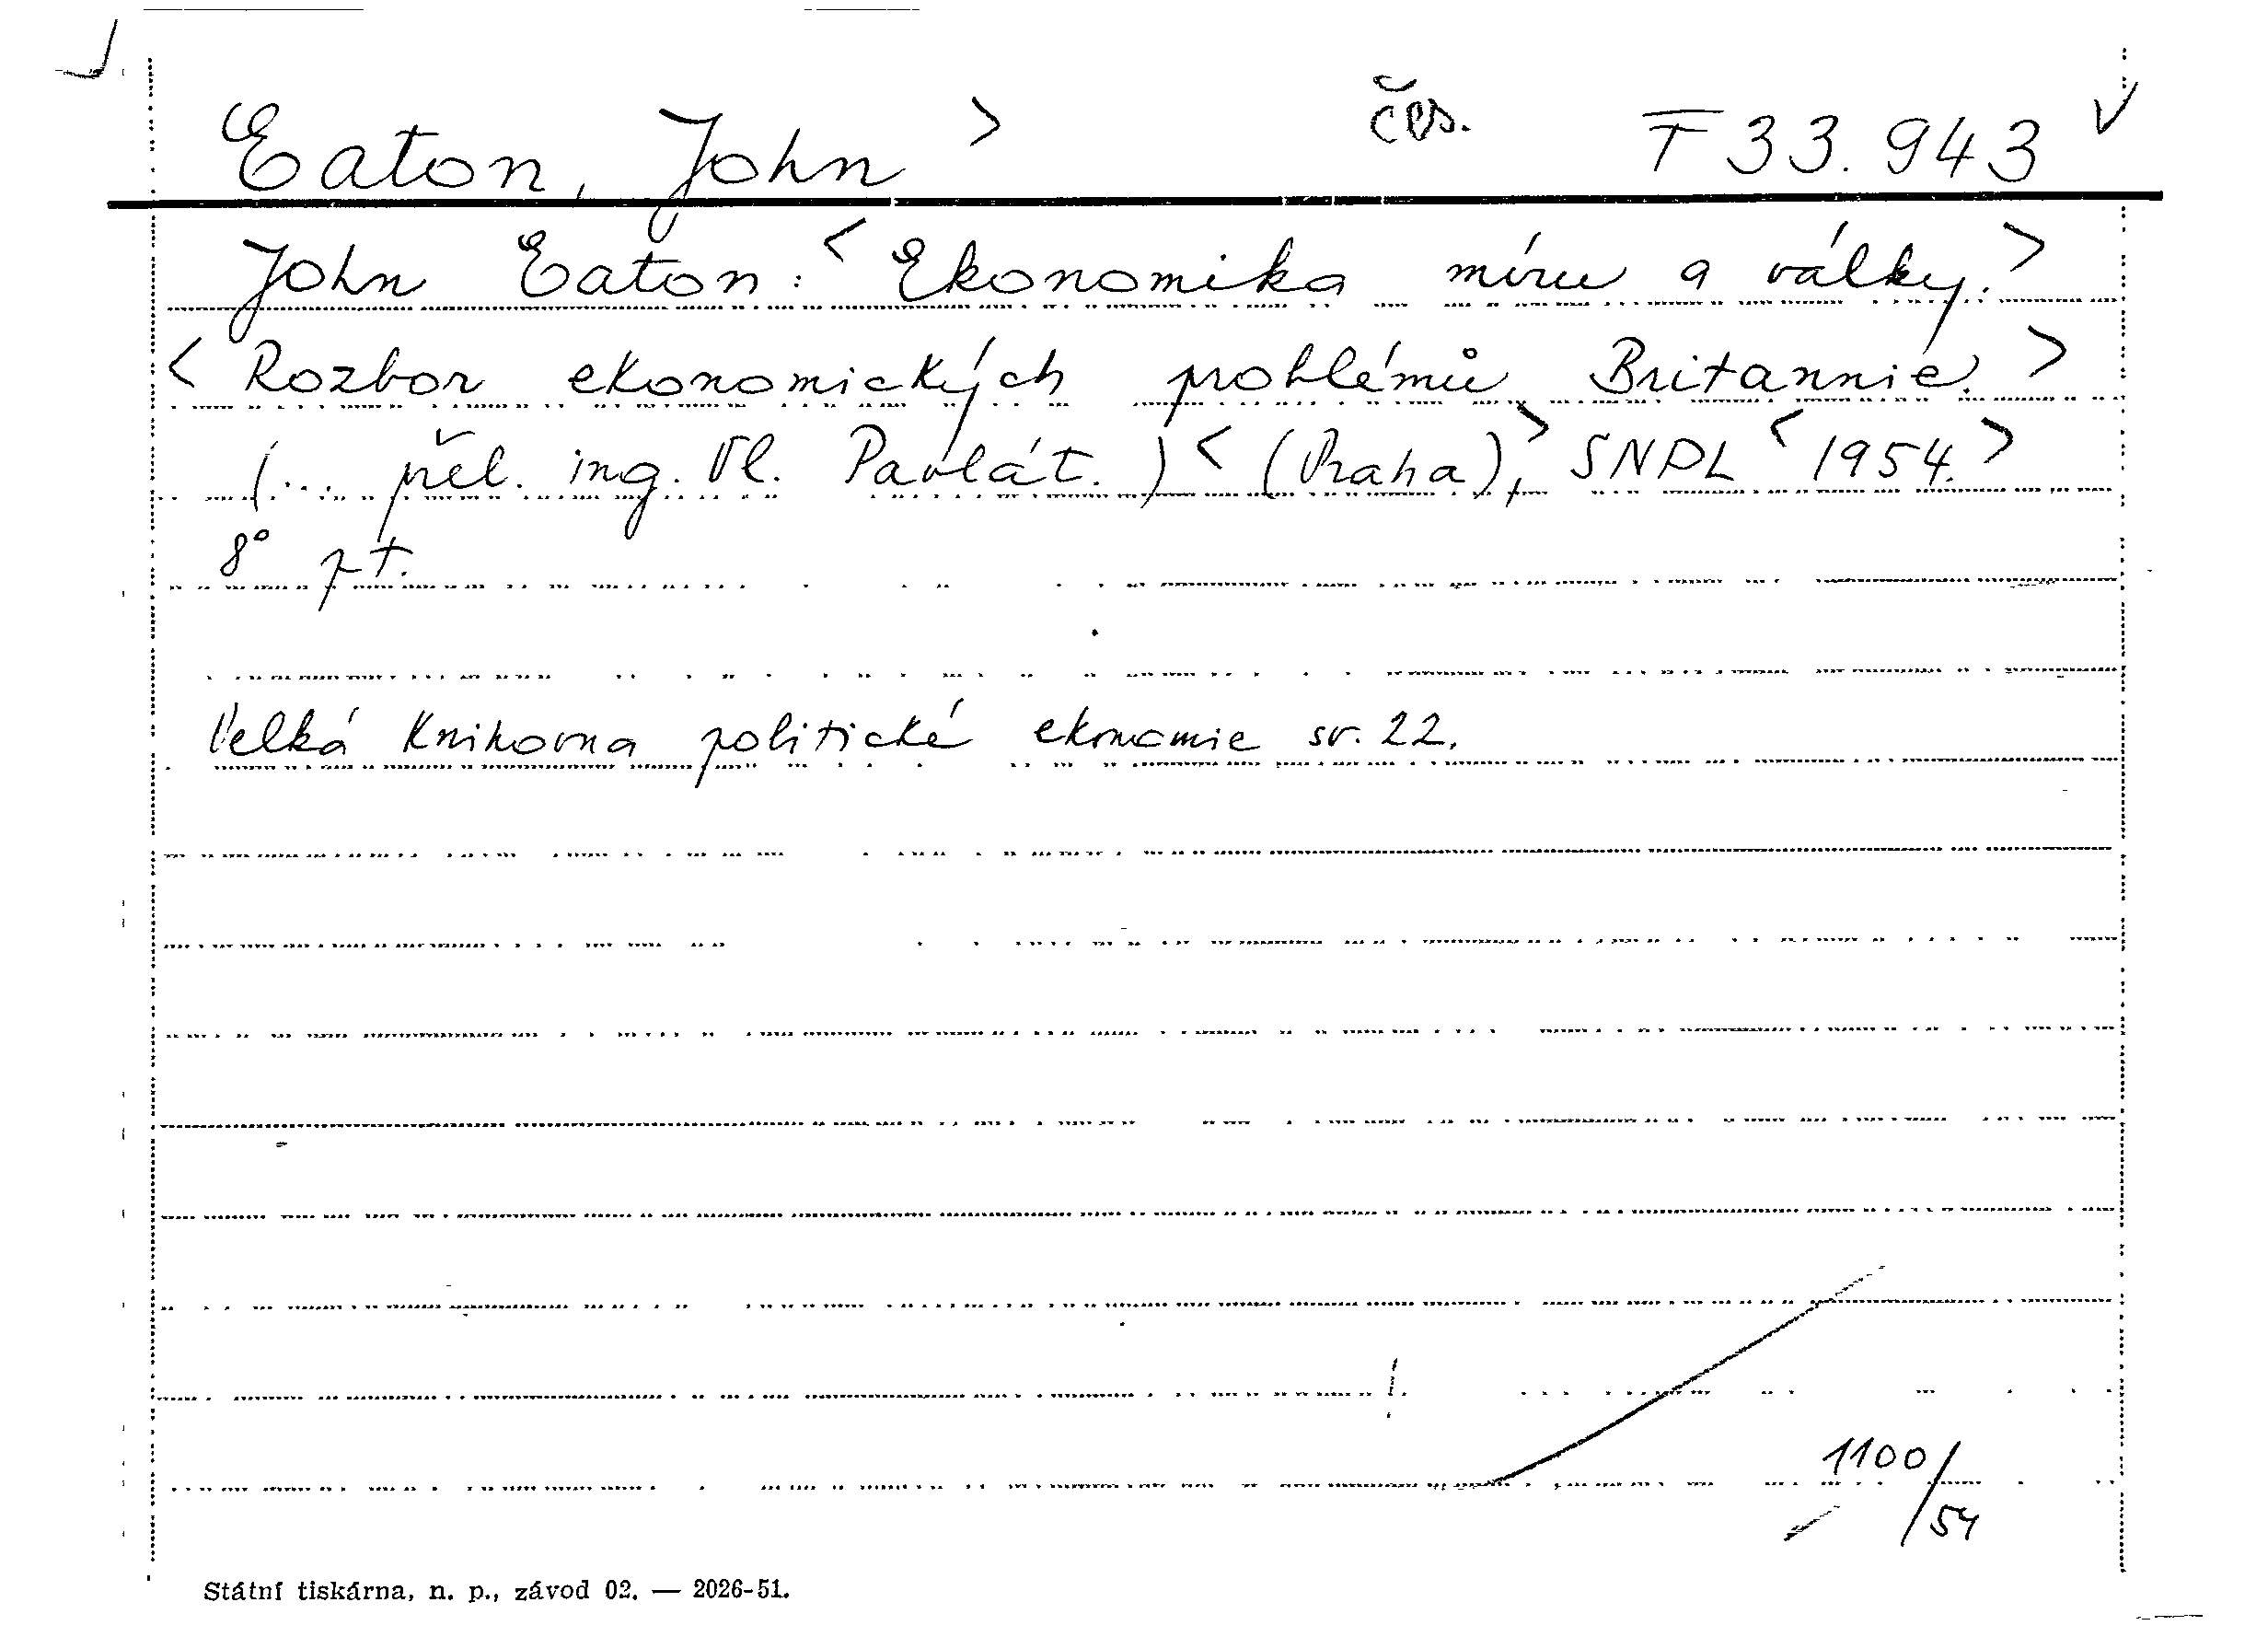 Eaton, John > čes. F 33.943 √
John Eaton: < Ekonomika míru a války. >
< Rozbor ekonomických problémů Britannie. >
(... přel. ing. Vl. Pavlát.) < (Praha), > SNPL < 1954. >
8° pt.
Velká knihovna politické ekonomie sv. 22.
1100/54
Státní tiskárna, n. p., závod 02. — 2026-51.